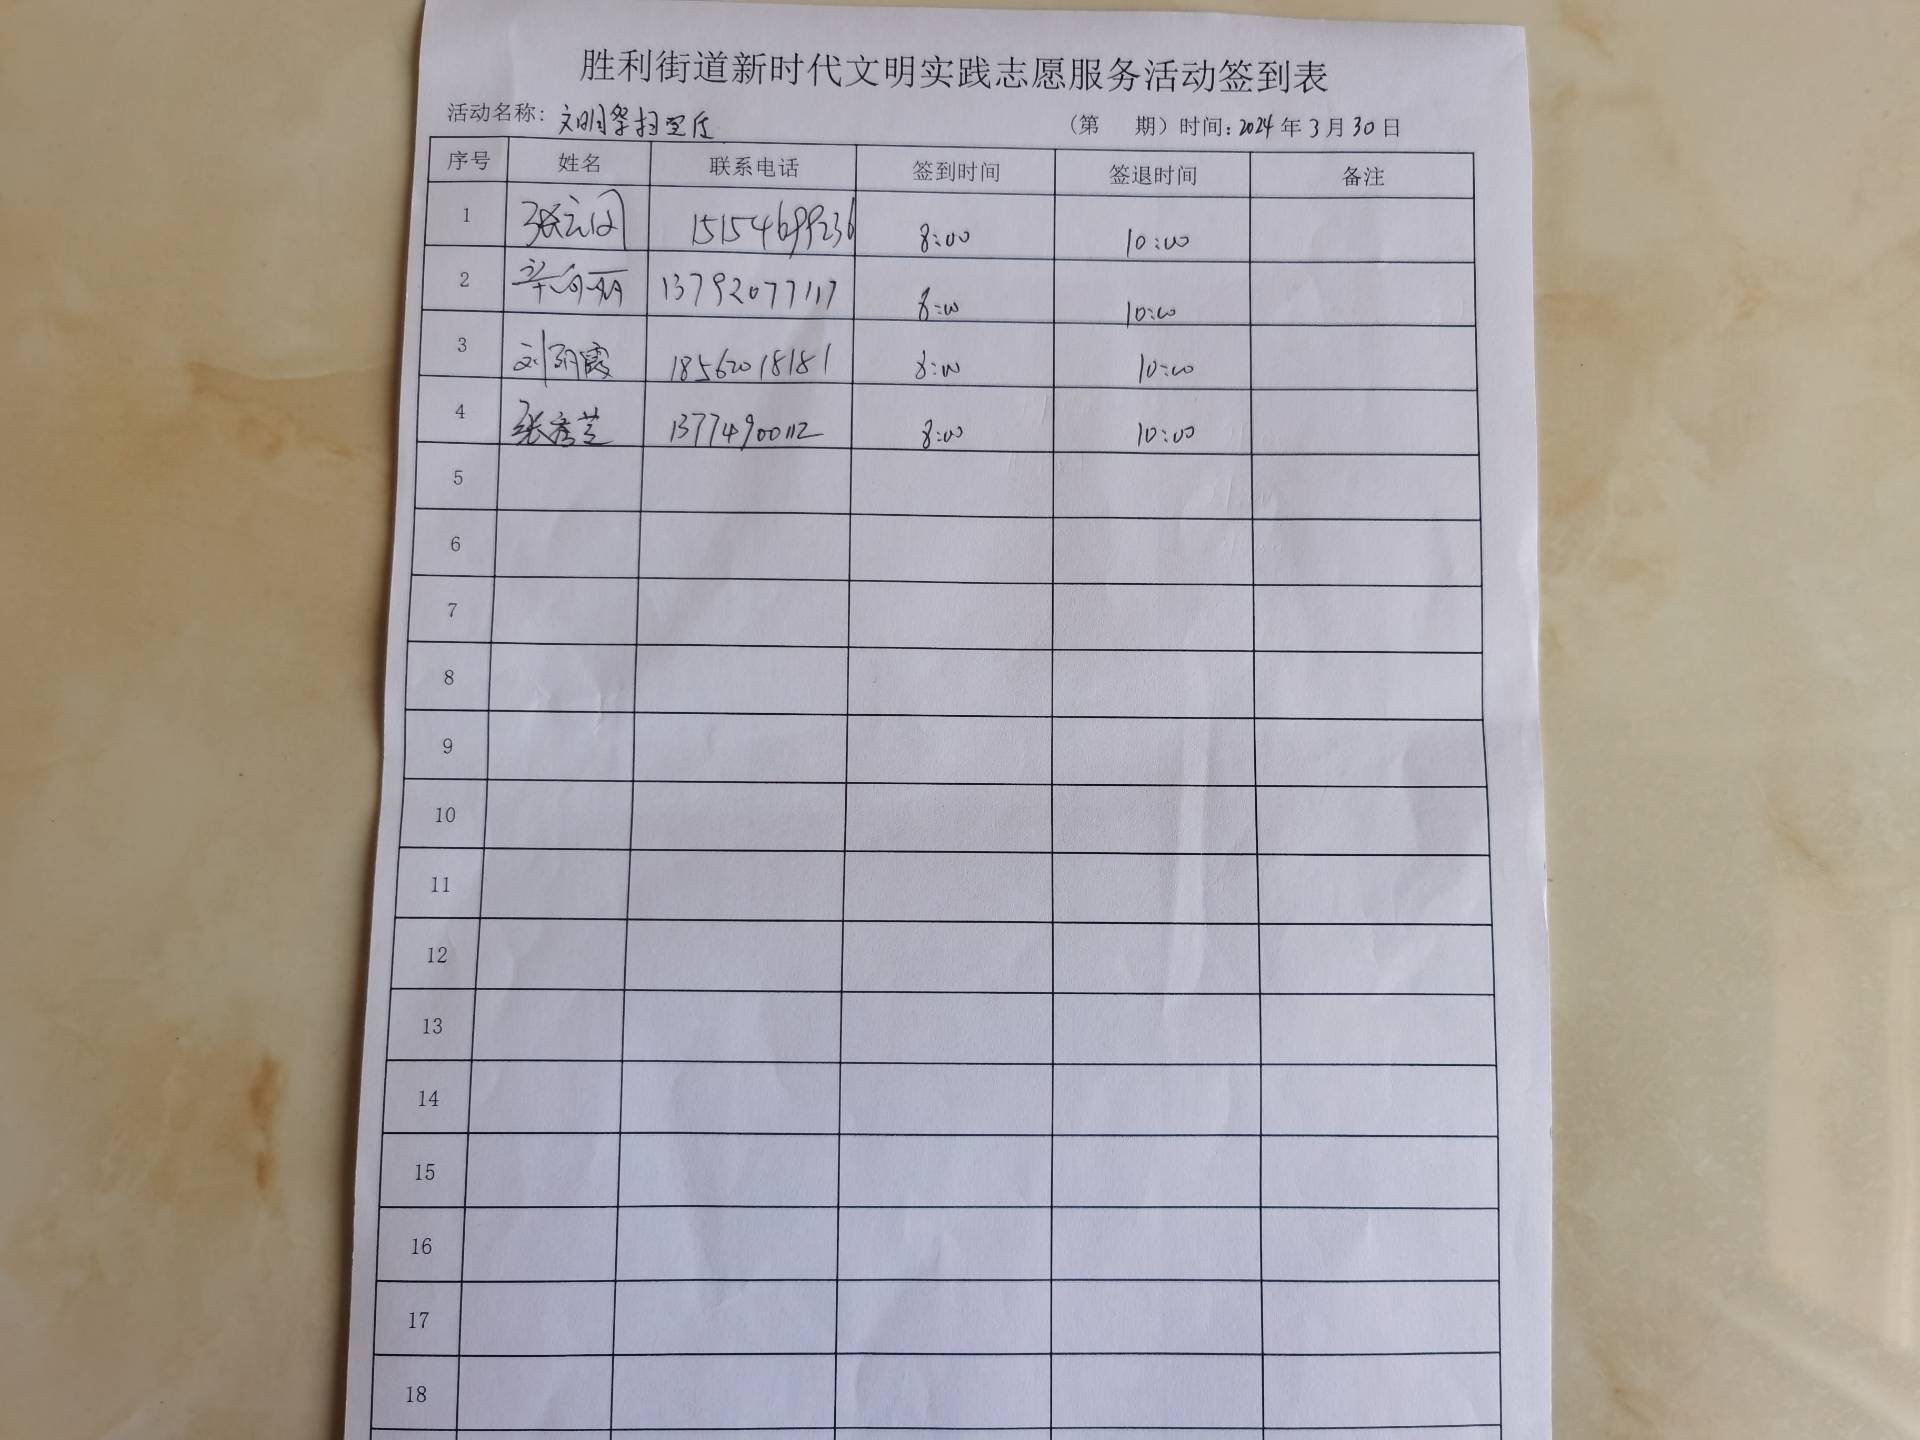 胜利街道新时代文明实践志愿服务活动签到表
活动名称：文明祭扫宣传
（第 期）时间：2024年3月30日
序号 姓名 联系电话 签到时间 签退时间 备注
1 张云 15154699236 8:00 10:00
2 辛向丽 13792077117 8:00 10:00
3 刘丽霞 18562018181 8:00 10:00
4 张秀芝 13774900112 8:00 10:00
5
6
7
8
9
10
11
12
13
14
15
16
17
18